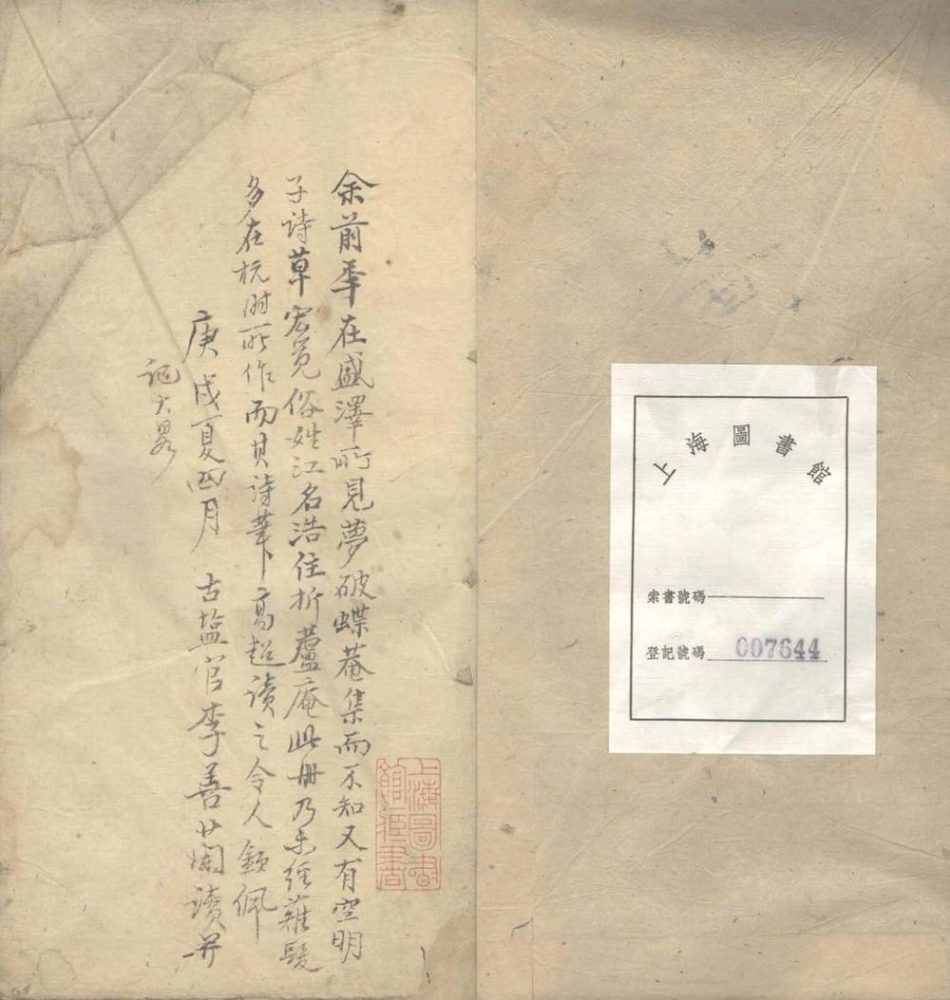 上海圖書館
索書號碼
登記號碼 007644
余前年在盛澤所見夢破蝶菴集而不知又有空明
子詩草宏覓俗姓江名浩住折蘆庵此冊乃未經薙髮
多在杭时所作而其詩筆高超讀之令人欽佩
庚戌夏四月 古盐官李善蘭讀并
記大畧
上海圖書
館藏書